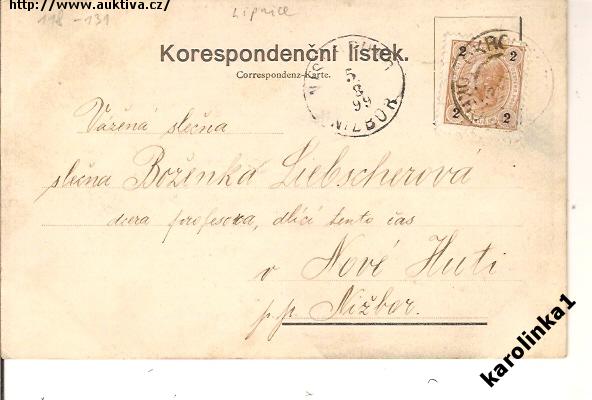 http://www.auktiva.cz/
118-131
Lipnice
Korespondenční lístek.
Correspondenz-Karte.
5 8 99
NIZBUR
2 2
2 2
Vážená slečna
slečna Boženka Liebscherová
dcera profesora, dlící tento čas
v Nové Huti
p.p. Nižbor.
karolinka1